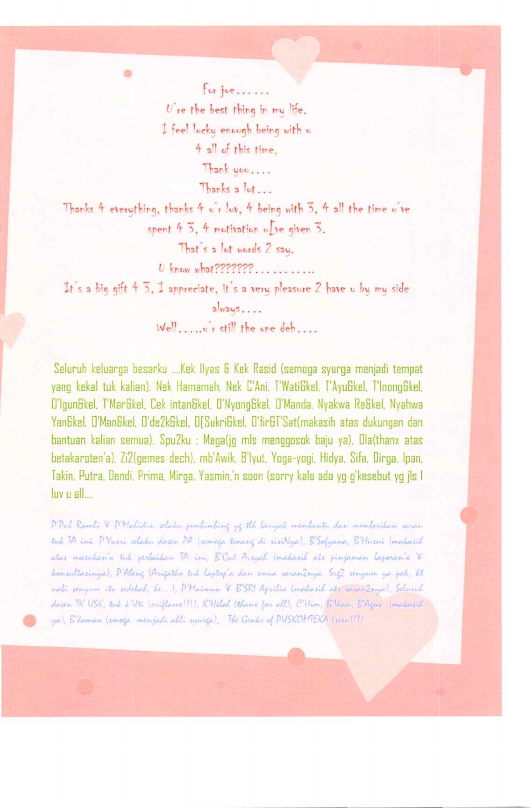 For joe......
U're the best thing in my life.
I feel lucky enough being with u
4 all of this time.
Thank you....
Thanks a lot...
Thanks 4 everything, thanks 4 u'r luv, 4 being with 3, 4 all the time u've
spent 4 3, 4 motivation u[ve given 3.
That's a lot words 2 say.
U know what???????..........
It's a big gift 4 3, I appreciate, it's a very pleasure 2 have u by my side
always....
Well.....u'r still the one deh....
Seluruh keluarga besarku ....Kek Ilyas & Kek Rasid (semoga syurga menjadi tempat
yang kekal tuk kalian). Nek Hamamah, Nek C'Ani, T'Wati&kel, T'Ayu&kel, T'Inong&kel,
O'Igun&kel, T'Mar&kel, Cek intan&kel, O'Nyong&kel, O'Manda, Nyakwa Re&kel, Nyahwa
Yan&kel, O'Man&kel, O'de2k&kel, O[Sukri&kel, O'fir&T'Sat(makasih atas dukungan dan
bantuan kalian semua). Spu2ku : Mega(jg mls menggosok baju ya), Ola(thanx atas
betakaroten'a), Zi2(gemes dech), mb'Awik, B'Iyut, Yoga-yogi, Hidya, Sifa, Dirga, Ipan,
Takin, Putra, Dendi, Prima, Mirga, Yasmin,'n soon (sorry kalo ada yg g'kesebut yg jls I
luv u all....
P'Pul Ramli & P'Mahidin selaku pembimbing yg tlh banyak membantu dan memberikan saran
tuk TA ini. P'Yusri selaku dosen PA (semoga tenang di sisiNya), B'Sofyana, B'Husni (makasih
atas masukan'a tuk perbaikan TA ini, B'Cut Aisyah (makasih ats pinjaman laporan'a &
konsultasinya), P'Abeng (Arigatho tuk laptop'a dan semua saran2nya. Sig2 senyum ya pak, kt
nabi senyum itu sedekah, he....), P'Maimun & B'SRI Aprilia (makasih ats saran2nya), Seluruh
dosen TK USK, tuk k'Uti (oriflame!!!), K'Hilal (thanx for all), C'Him, B'Wan, B'Agus (makasih
ya), B'Jaman (smoga menjadi ahli syurga), The Genks of PUSKOMTEKA (seru!!!)